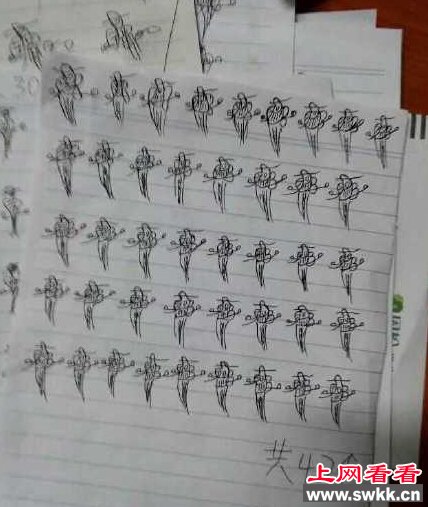 30
共42个
上网看看
www.swkk.cn